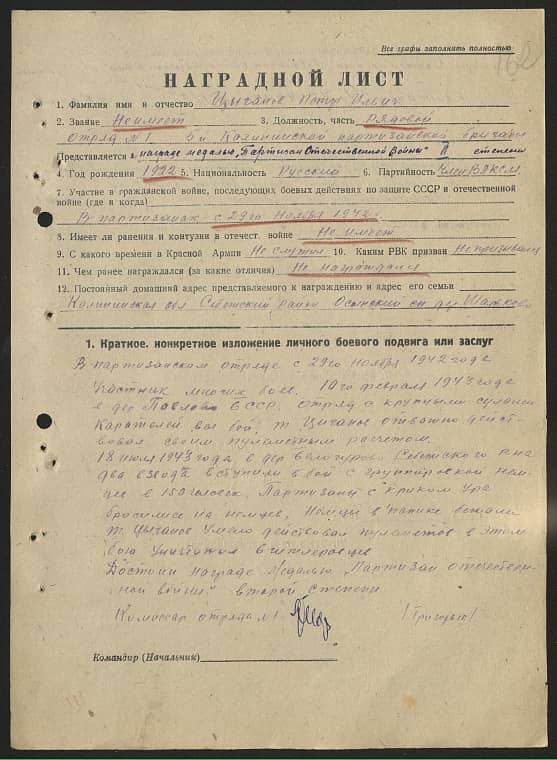 Все графы заполнять полностью
162
НАГРАДНОЙ ЛИСТ
1. Фамилия имя и отчество Цыганов Петр Ильич
2. Звание Не имеет 3. Должность, часть Рядовой
отряд №1 5й Калининской партизанской бригады
Представляется к награде медалью „Партизан Отечественной Войны" II степени
4. Год рождения 1922 5. Национальность Русский 6. Партийность Член ВЛКСМ
7. Участие в гражданской войне, последующих боевых действиях по защите СССР и отечественной
войне (где и когда)
В партизанах с 29го Ноября 1942г
8. Имеет ли ранения и контузии в отечест. войне Не имеет
9. С какого времени в Красной Армии Не служил 10. Каким РВК призван Не призывался
11. Чем ранее награждался (за какие отличия) Не награждался
12. Постоянный домашний адрес представляемого к награждению и адрес его семьи
Калининская обл Себежский район Осынский с/с дер
1. Краткое, конкретное изложение личного боевого подвига или заслуг
В партизанском отряде с 29го Ноября 1942 года
Участник многих боев. 10го февраля 1943 года
в дер Павлово БССР отряд с крупными силами
Карателей вел бой, т. Цыганов отважно дейст-
вовал своим пулеметным расчетом.
18 июля 1943 года в дер Себежского р-на
два взвода вступили в бой с группировкой нем-
цев в 150 человек. Партизаны с криком Ура
бросились на немцев, Немцы в панике бежали
т. Цыганов умело действовал пулеметов в этом
бою Уничтожил 6 гитлеровцев
Достоин награде Медалью „Партизан отечествен-
ной войны" второй степени
Комиссар отряда №1
Командир (Начальник)